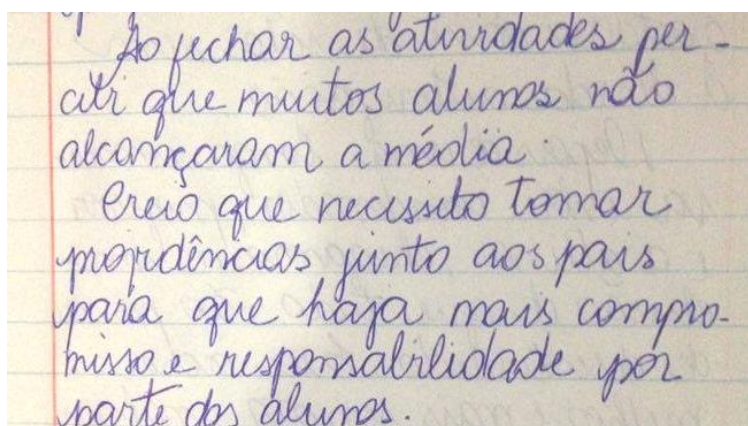 Ao fechar as atividades per-
cebi que muitos alunos não
alcançaram a média.
Creio que necessito tomar
providências junto aos pais
para que haja mais compro-
misso e responsabilidade por
parte dos alunos.